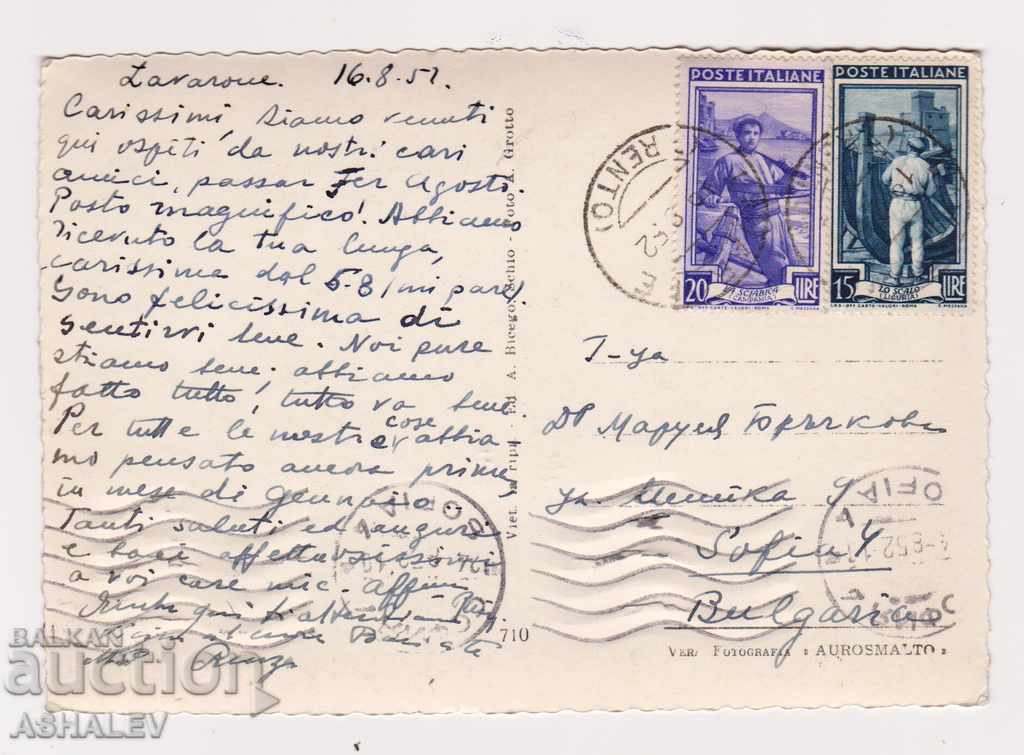 Lavarone. 16.8.52.
Carissimi, siamo venuti
qui ospiti da nostri cari
amici, passar Fer Agosto.
Posto magnifico! Abbiamo
ricevuto la tua lunga,
carissima dal 5-8/mi pare/
Sono felicissima di
sentirvi bene. Noi pure
stiamo bene. abbiamo
fatto tutto, tutto va bene.
Per tutte le nostre cose abbia
mo pensato ancora prima,
in mese di Gennaio.
Tanti saluti ed auguri
e baci affettuosissimi
a voi care mie.
Renza
POSTE ITALIANE
20 LIRE
LA SCIABICA
(CAMPANIA)
POSTE ITALIANE
15 LIRE
LO SCALO
(LIGURIA)
TRENTO)
Г-ца
Др Маруся Бръчкова
ул. Шейка
Sofia 4
Bulgaria
SOFIA
Ed. A. Bicego. Schio - Foto A. Grotto
710
VERA FOTOGRAFIA « AUROSMALTO »
BALKAN
auction
ASHALEV